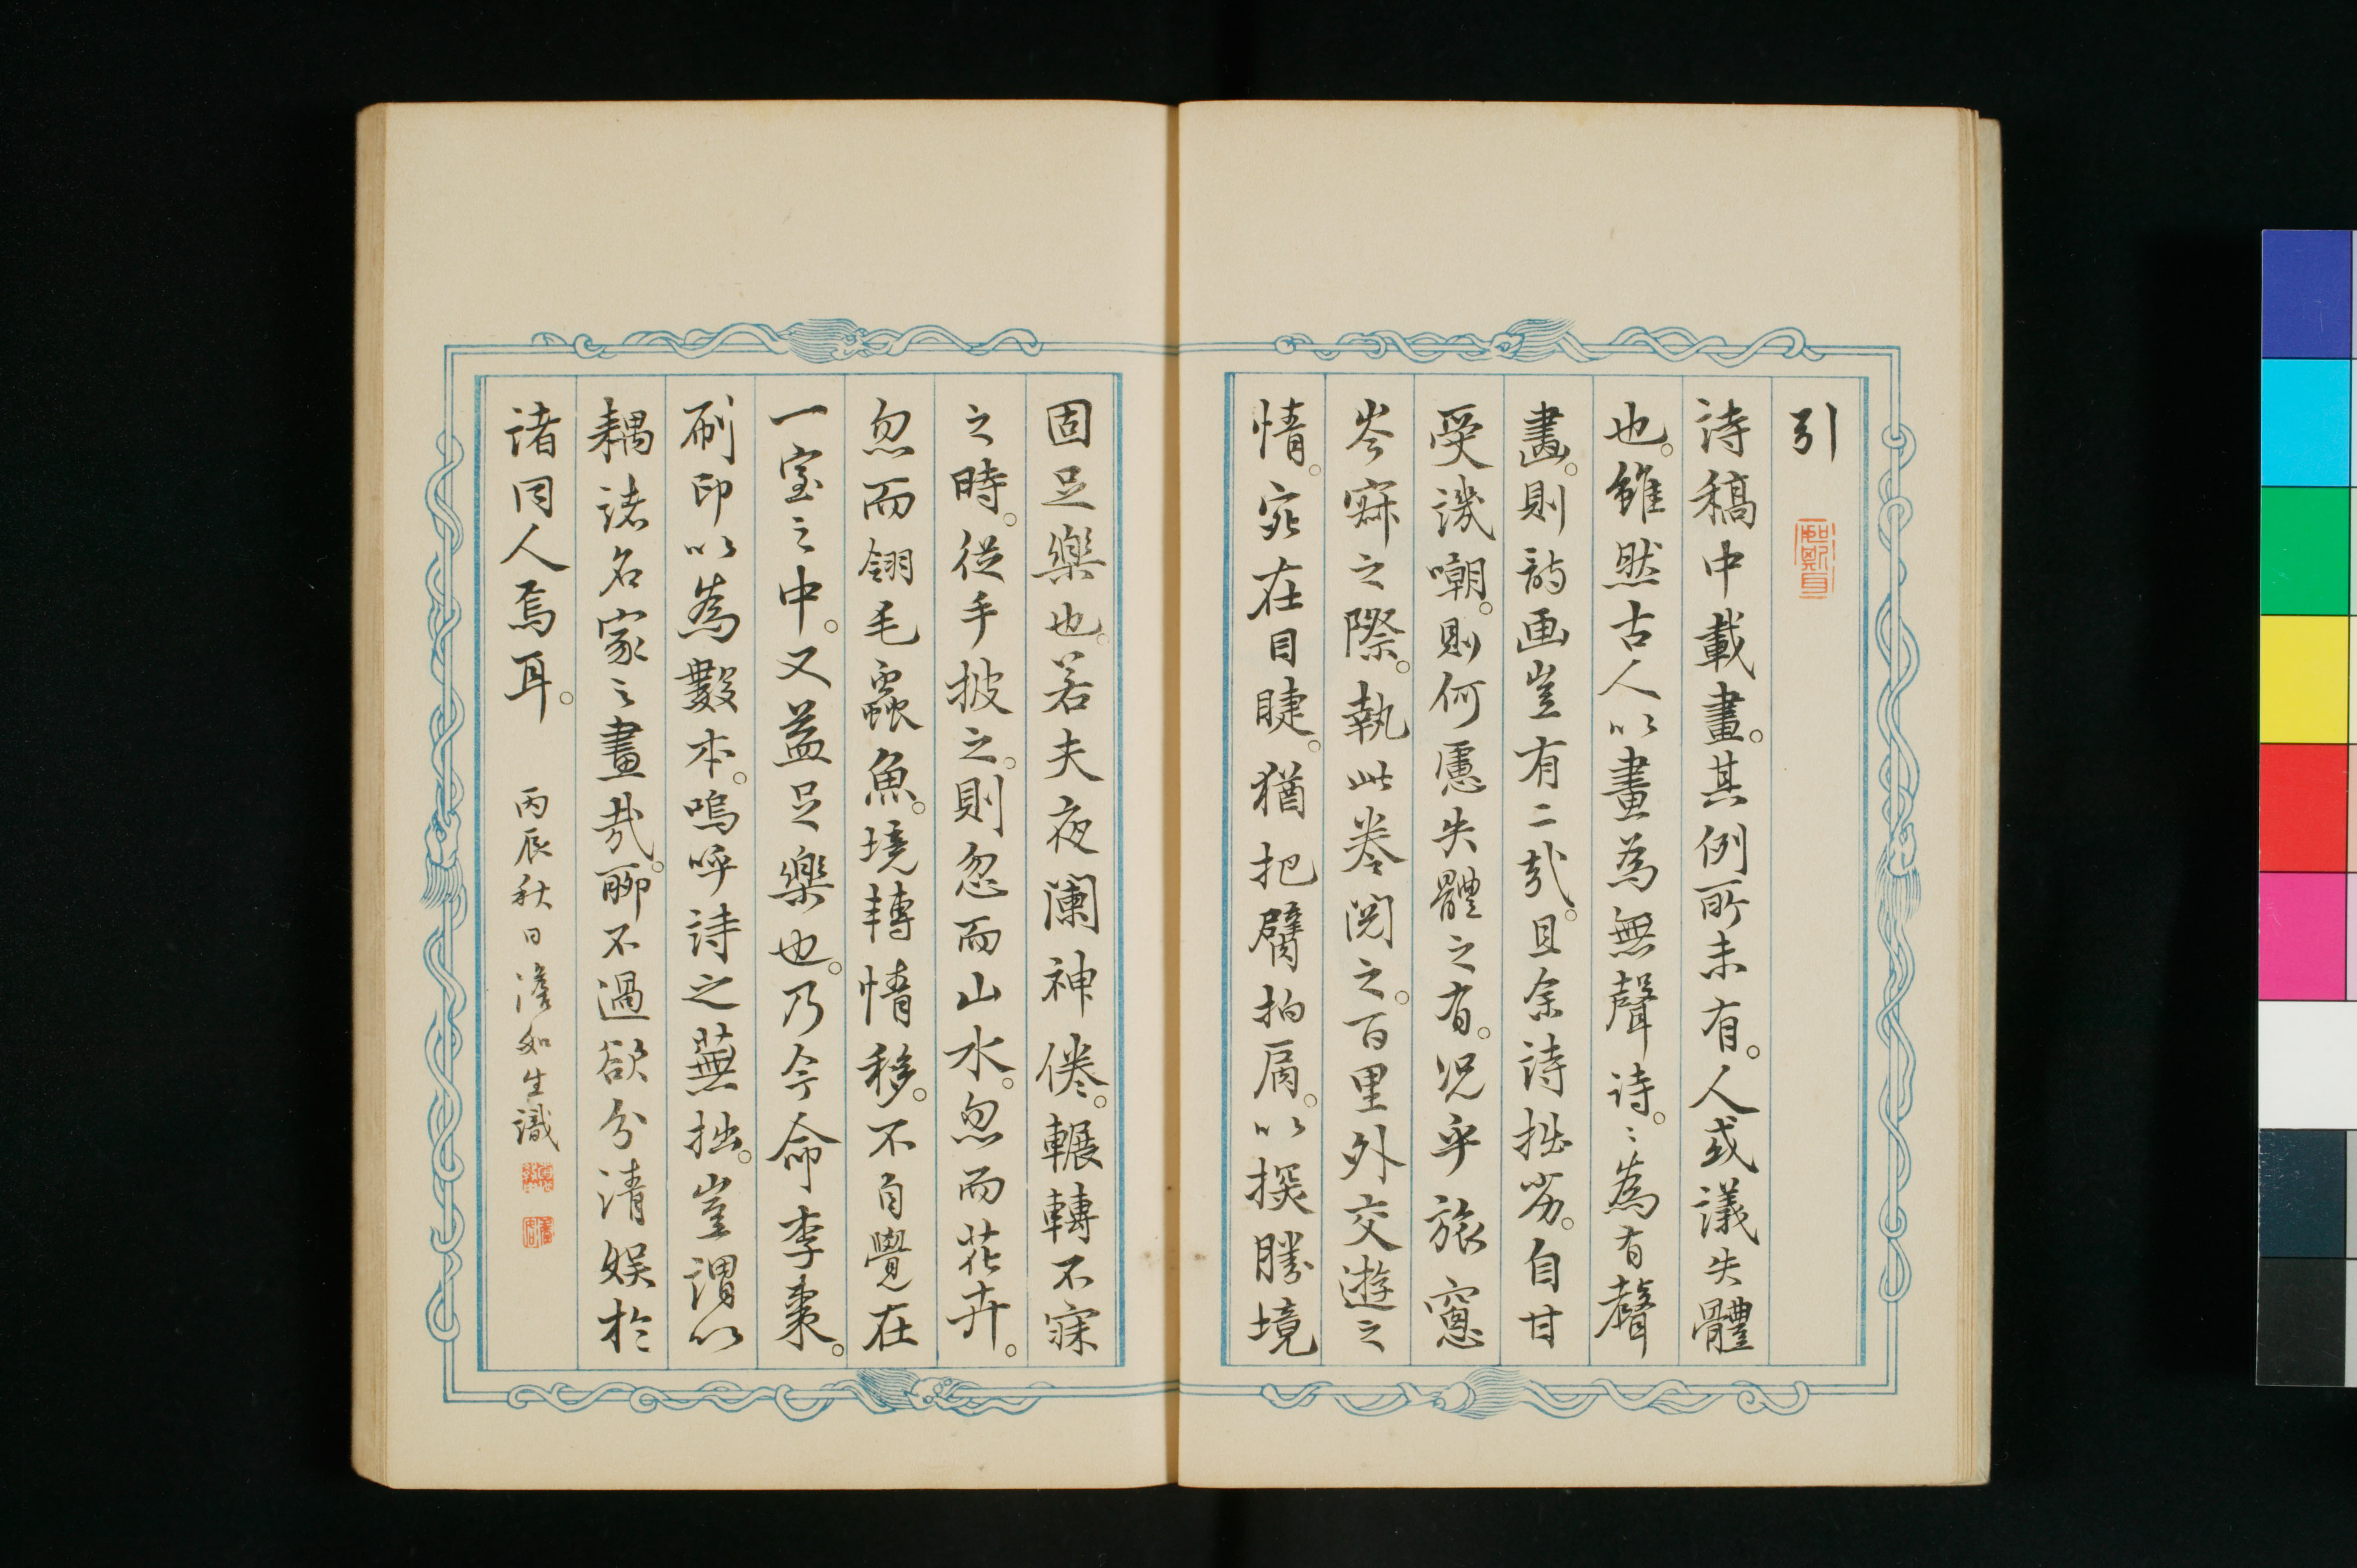 引
詩稿中載畫。其例所未有。人或議失體
也。雖然古人以畫為無聲詩。〻為有聲
畫。則詩画豈有二哉。且余詩拙劣。自甘
受譏嘲。則何慮失體之有。况乎旅窻
岑寂之際。執此卷閲之。百里外交遊之
情。宛在目睫。猶把臂拍肩。以探勝境
固足樂也。若夫夜闌神倦。輾轉不寐
之時。從手披之。則忽而山水。忽而花卉。
忽而翎毛蟲魚。境轉情移。不自覺在
一室之中。又益足樂也。乃今命李棗。
刷印以為數本。嗚呼詩之蕪拙。豈謂以
耦諸名家之畫哉。聊不過欲分清娛於
諸同人焉耳。
丙辰秋日澹如生識